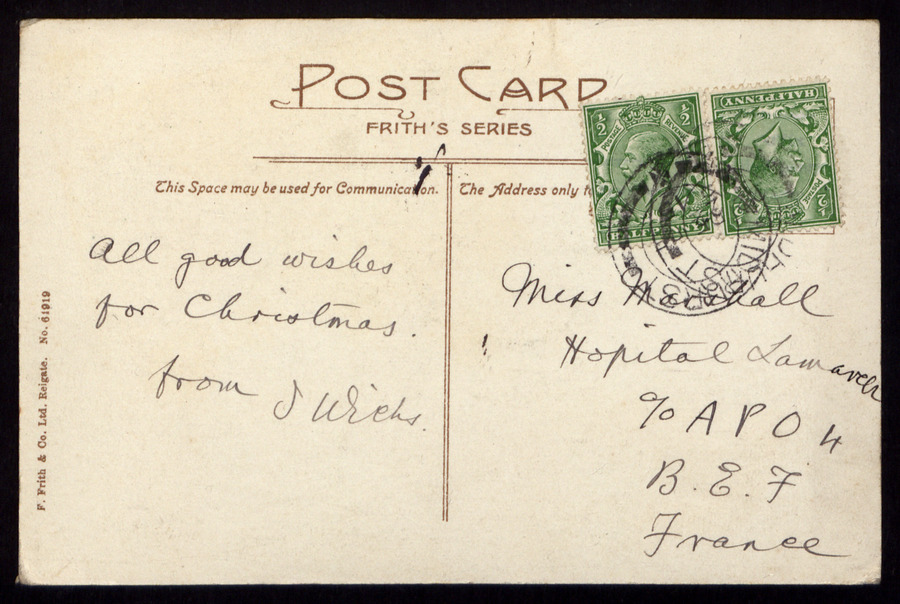 POST CARD
FRITH'S SERIES
This Space may be used for Communication.
The Address only
½ ½
POSTAGE REVENUE
HALFPENNY
HALFPENNY
POSTAGE
½ ½
All good wishes
for Christmas.
from J Wicks.
Miss Marshall
Hopital Lamarck
c/o A P O 4
B. E. F
France
F. Frith & Co. Ltd. Reigate. No. 61919